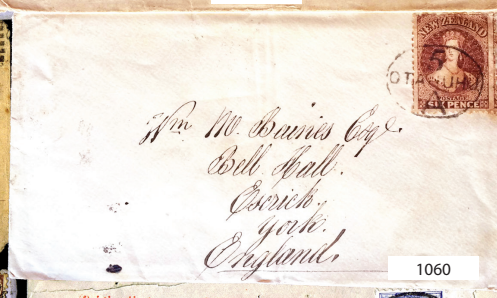 NEW ZEALAND
SIX PENCE
Wm M. Baines Esqr.
Bell Hall.
Escrick.
York.
England.
1060